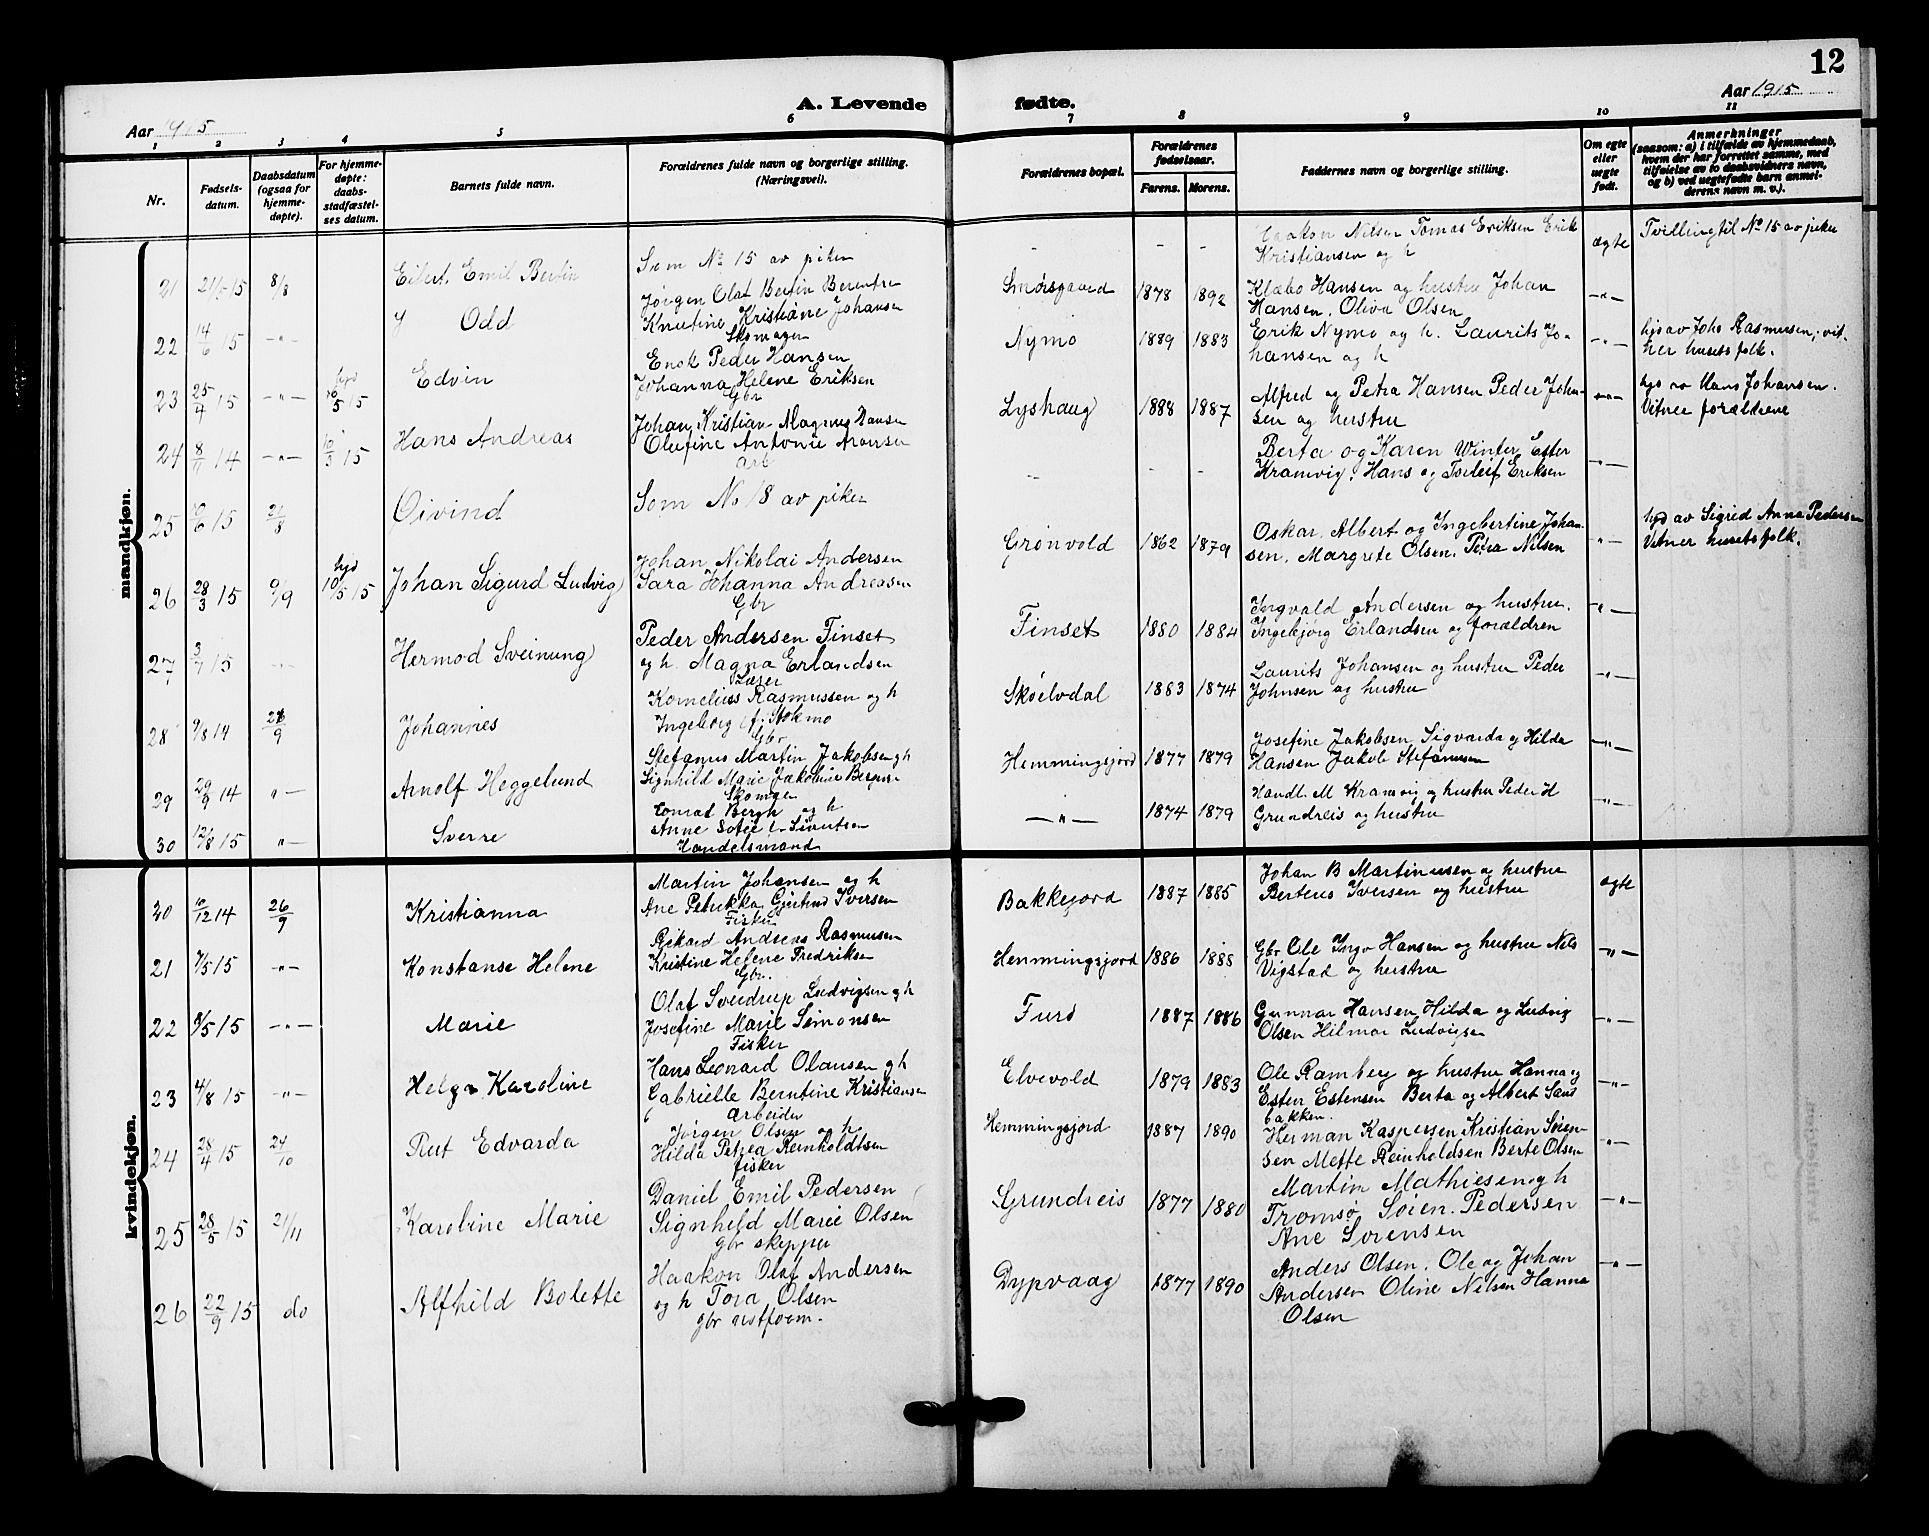 12
A. Levende fødte.
Aar 1915
Aar 1915
1 2 3 4 5 6 7 8 9 10 11
Nr.
Fødsels-
datum.
Daabsdatum
(ogsaa for
hjemme-
døpte).
For hjemme-
døpte:
daabs-
stadfæstel-
ses datum.
Barnets fulde navn.
Forældrenes fulde navn og borgerlige stilling.
(Næringsvei).
Forældrenes bopæl.
Forældrenes
fødselsaar.
Farens. Morens.
Faddernes navn og borgerlige stilling.
Om egte
eller
uegte
født.
Anmerkninger
(saasom: a) i tilfælde av hjemmedaab,
hvem der har forrettet samme, med
tilføielse av to daabsvidners navn,
og b) ved uegtefødte barn anmel-
derens navn m. v.).
mandkjøn.
21 21/5 15 8/8 Eilert Emil Bertin
Som No 15 av piker
- - -
Haakon Nilsen Tomas Eriksen Erik
Kristiansen og h
ægte
Tvilling til No 15 av piker
22 14/6 15 -"- Odd
Jørgen Olaf Bertin Berentsen
Knutine Kristiane Johansen
Skomager
Smørsgaard 1878 1892
Klæbo Hansen og hustru Johan
Hansen, Oliva Olsen
-"-
23 25/4 15 -"- hjd 16/5 15 Edvin
Enok Peder Hansen
Johanna Helene Eriksen
Gbr
Nymo 1889 1883
Erik Nymo og h. Laurits Jo-
hansen og h
-"-
hjd av Johs Rasmussen; vit-
ner husetsfolk.
24 8/11 14 -"- 10/3 15 Hans Andreas
Johan Kristian Magnus Hansen
Olufine Antonie Aronsen
arb
Lyshaug 1888 1887
Alfred og Petra Hansen Peder Johan-
sen og hustru
-"-
hjd av Hans Johansen.
Vitner forældrene
25 10/6 15 21/8 Oivind
Som No 18 av piker
- - -
Berta og Karen Winter, Ester
Kramvig, Hans og Torleif Eriksen
-"-
26 28/3 15 9/9 hjd 10/5 15 Johan Sigurd Ludvig
Johan Nikolai Andersen
Sara Johanna Andreasen
Gbr
Grønvold 1862 1879
Oskar, Albert og Ingebertine Johan-
sen, Margrete Olsen, Petra Nilsen
-"-
hjd av Sigrid Anna Pedersen
Vitner husetsfolk.
27 3/7 15 -"- Hermod Sveinung
Peder Andersen Finset
og h. Magna Erlandsen
Lærer
Finset 1880 1884
Ingvald Andersen og hustru.
Ingebjørg Erlandsen og forældren
-"-
28 9/8 14 26/9 Johannes
Kornelius Rasmussen og h
Ingeborg f. Stokmo
Gbr
Skøelvdal 1883 1874
Laurits Johansen og hustru Peder
Johnsen og hustru
-"-
29 29/9 14 "- Arnolf Heggelund
Stefanus Martin Jakobsen og h
Signhild Marie Jakobine
Skomger
Hemmingsjord 1877 1879
Josefine Jakobsen, Sigvarda og Hilda
Hansen Jakob Stefanussen
-"-
30 12/8 15 "- Sverre
Konrad Bergh og h
Anne Sofie f. Sivertsen
Handelsmand
-"- 1874 1879
Handl. M Kramvig og hustru Peder H
Grundreis og hustru
-"-
kvindekjøn.
20 10/12 14 26/9 Kristianna
Martin Johansen og h
Ane Petrikka Gjertrud Iversen
Fisker
Bakkejord 1887 1885
Johan B Martinussen og hustru
Berteus Iversen og hustru
ægte
21 7/5 15 -"- Konstanse Helene
Rikard Andreas Rasmusen
Kristine Helene Fredriksen
Gbr.
Hemmingsjord 1886 1888
Gbr Ole Ingv Hansen og hustru Nils
Vigstad og hustru
-"-
22 8/5 15 -"- Marie
Olaf Sverdrup Ludvigsen og h
Josefine Marie Simonsen
Fisker
Furø 1887 1886
Gunnar Hansen Hilda og Ludvig
Olsen Hilmar Ludvigsen
-"-
23 4/8 15 -"- Helga Karoline
Hans Leonard Olausen og h
Gabrielle Berntine Kristiansen
arbeider
Elvevold 1879 1883
Ole Ramberg og hustru Hanna og
Ester Estensen Berta og Albert Sand
bakken.
-"-
24 28/4 15 24/10 Rut Edvarda
Jørgen Olsen og h
Hilda Petrea Reinholdtsen
fisker
Hemmingsjord 1887 1890
Herman Kaspersen Kristian Sören-
sen Mette Reinholdsen Berte Olsen
-"-
25 28/5 15 21/11 Karoline Marie
Daniel Emil Pedersen
Signheld Marie Olsen
gbr skipper
Grundreis 1877 1880
Martin Mathiesen og h
Tromsø Sören Pedersen
Ane Sorensen
-"-
26 22/9 15 do Alfhild Bolette
Haakon Olaf Andersen
og h Tora Olsen
gbr
Dypvaag 1877 1890
Anders Olsen, Ole og Johan
Andersen Oline Nilsen Hanna
Olsen
-"-